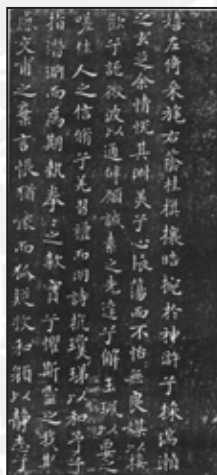 嬉左倚采旄右蔭桂旗攘皓捥於神滸兮採湍瀨
之玄芝余情悅其淑美兮心振蕩而不怡無良媒以接
歡兮託微波以通辭願誠素之先達兮解玉珮以要之
嗟佳人之信脩兮羌習禮而明詩抗瓊珶以和予兮
指潛淵而為期執拳〻之款實兮懼斯靈之我欺
感交甫之棄言悵猶豫而狐疑收和顏以靜志兮